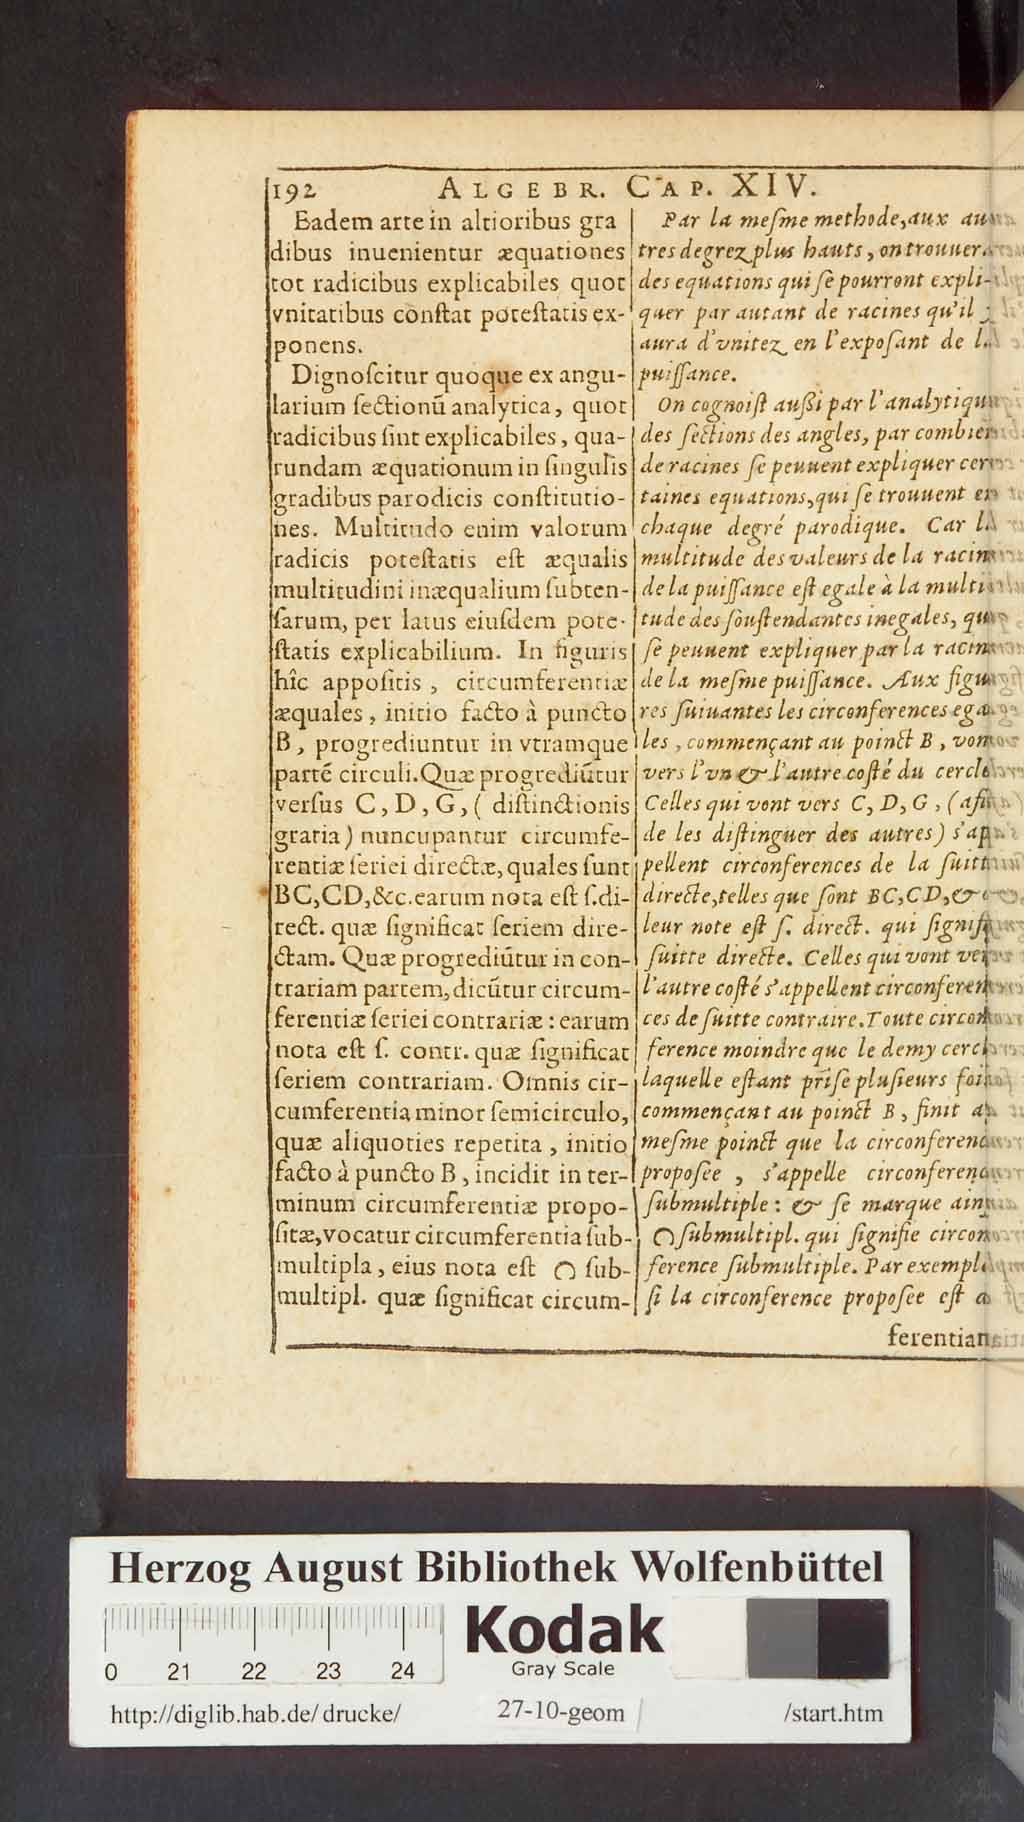 192 ALGEBR. CAP. XIV.
Eadem arte in altioribus gra
dibus inuenientur æquationes
tot radicibus explicabiles quot
vnitatibus conſtat poteſtatis ex-
ponens.
Dignoſcitur quoque ex angu-
larium ſectionū analytica, quot
radicibus ſint explicabiles, qua-
rundam æquationum in ſingulis
gradibus parodicis conſtitutio-
nes. Multitudo enim valorum
radicis poteſtatis eſt æqualis
multitudini inæqualium ſubten-
ſarum, per latus eiuſdem pote-
ſtatis explicabilium. In figuris
hîc appoſitis, circumferentiæ
æquales, initio facto à puncto
B, progrediuntur in vtramque
partē circuli. Quæ progrediūtur
verſus C, D, G, ( diſtinctionis
gratia) nuncupantur circumfe-
rentiæ ſeriei directæ, quales ſunt
BC, CD, &c. earum nota eſt ſ. di-
rect. quæ ſignificat ſeriem dire-
ctam. Quæ progrediūtur in con-
trariam partem, dicūtur circum-
ferentiæ ſeriei contrariæ : earum
nota eſt ſ. contr. quæ ſignificat
ſeriem contrariam. Omnis cir-
cumferentia minor ſemicirculo,
quæ aliquoties repetita, initio
facto à puncto B, incidit in ter-
minum circumferentiæ propo-
ſitæ, vocatur circumferentia ſub-
multipla, eius nota eſt ∩ ſub-
multipl. quæ ſignificat circum-
Par la meſme methode, aux au
tres degrez plus hauts, on trouuer
des equations qui ſe pourront expli-
quer par autant de racines qu'il y
aura d'vnitez en l'expoſant de la
puiſſance.
On cognoiſt außi par l'analytique
des ſections des angles, par combien
de racines ſe peuuent expliquer cer
taines equations, qui ſe trouuent en
chaque degré parodique. Car la
multitude des valeurs de la racine
de la puiſſance eſt egale à la multi
tude des ſouſtendantes inegales, qui
ſe peuuent expliquer par la racine
de la meſme puiſſance. Aux figu
res ſuiuantes les circonferences ega
les, commençant au poinct B, vont
vers l'vn & l'autre coſté du cercle
Celles qui vont vers C, D, G, (afin
de les diſtinguer des autres) s'ap
pellent circonferences de la ſuitte
directe, telles que ſont BC, CD, &
leur note eſt ſ. direct. qui ſignifie
ſuitte directe. Celles qui vont vers
l'autre coſté s'appellent circonferen
ces de ſuitte contraire. Toute circon
ference moindre que le demy cercle
laquelle eſtant priſe pluſieurs fois
commençant au poinct B, finit au
meſme poinct que la circonference
propoſee, s'appelle circonference
ſubmultiple : & ſe marque ainſi
∩ ſubmultipl. qui ſignifie circon
ference ſubmultiple. Par exemple
ſi la circonference propoſee eſt a
ferentiam
Herzog August Bibliothek Wolfenbüttel
0 21 22 23 24
Kodak
Gray Scale
http://diglib.hab.de/drucke/ 27-10-geom /start.htm